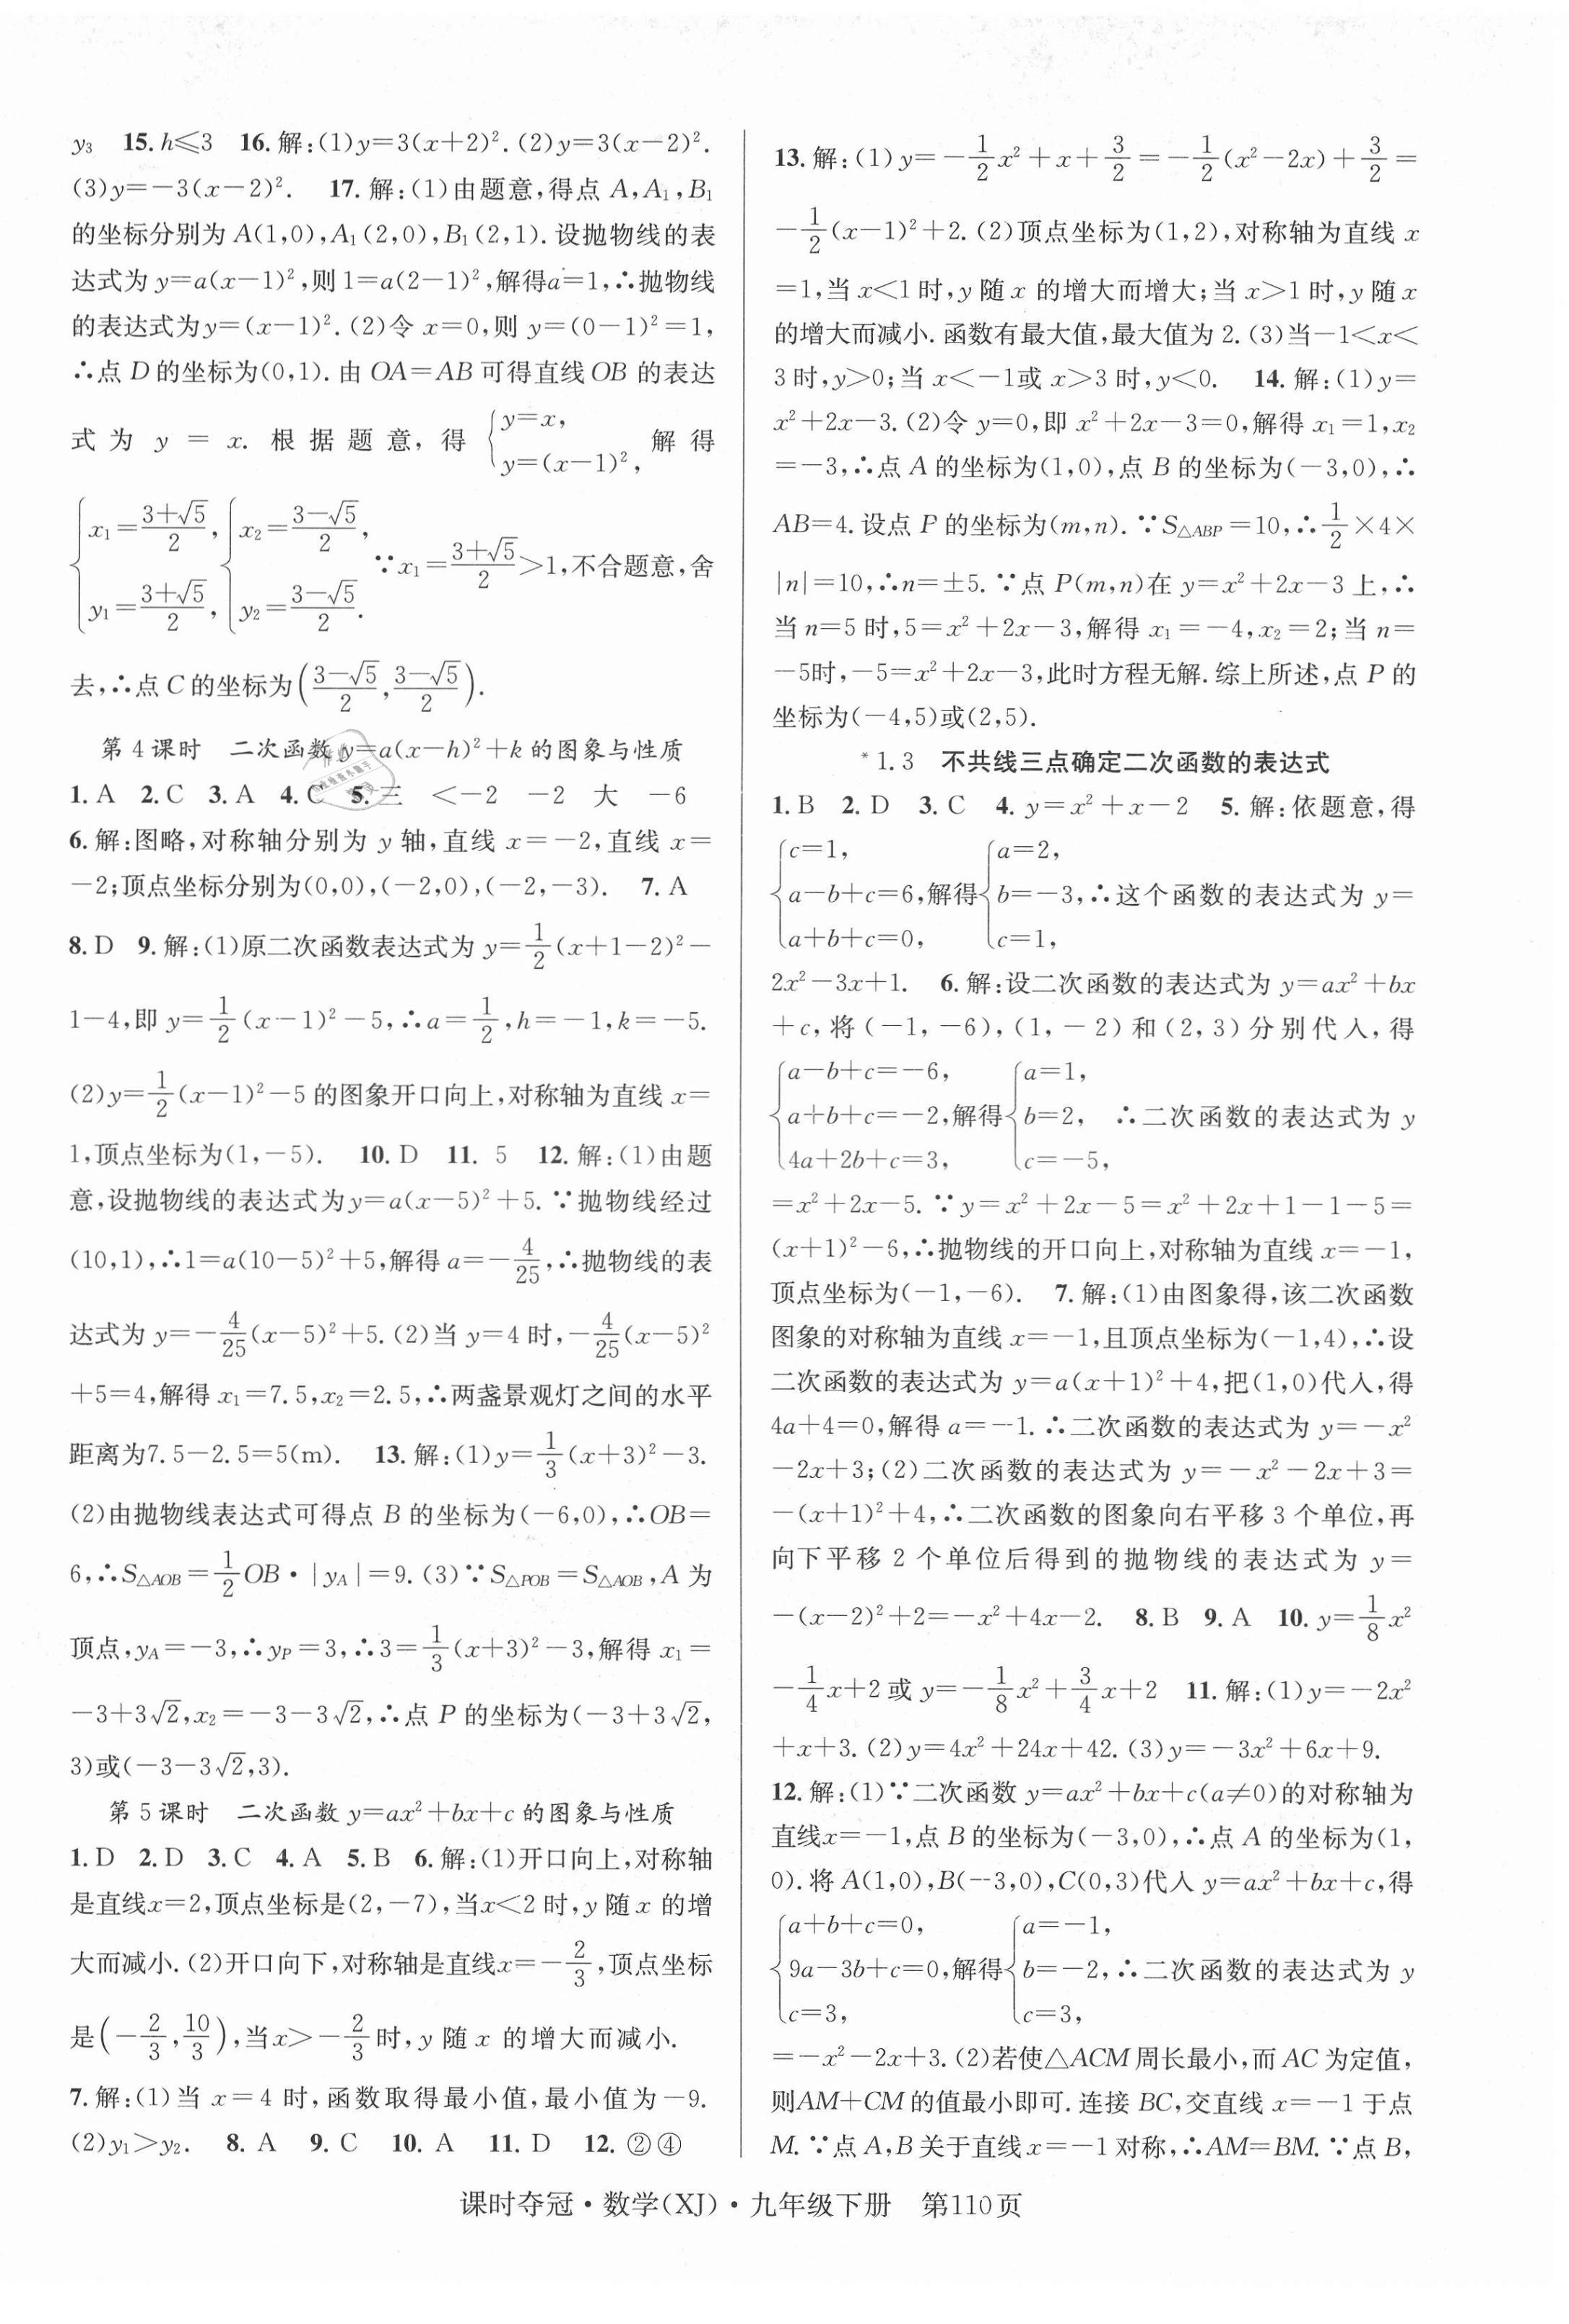 y₃　15. h≤3　16. 解:(1)y=3(x+2)². (2)y=3(x-2)².
(3)y=-3(x-2)².　17. 解:(1)由题意,得点 A,A₁,B₁
的坐标分别为 A(1,0),A₁(2,0),B₁(2,1). 设抛物线的表
达式为 y=a(x-1)²,则1=a(2-1)²,解得a=1,∴抛物线
的表达式为y=(x-1)². (2)令 x=0,则 y=(0-1)²=1,
∴点 D 的坐标为(0,1). 由 OA=AB 可得直线OB 的表达
式为 y = x. 根据题意,得{y=x, y=(x-1)², 解得
{x₁=(3+√5)/2, y₁=(3+√5)/2, {x₂=(3-√5)/2, y₂=(3-√5)/2. ∵x₁=(3+√5)/2>1,不合题意,舍
去,∴点 C 的坐标为((3-√5)/2,(3-√5)/2).
第4课时　二次函数 y=a(x-h)²+k 的图象与性质
1. A　2. C　3. A　4. C　5. 三　<-2　-2　大　-6
6. 解:图略,对称轴分别为 y 轴,直线 x=-2,直线 x=
-2;顶点坐标分别为(0,0),(-2,0),(-2,-3).　7. A
8. D　9. 解:(1)原二次函数表达式为 y=1/2(x+1-2)²-
1-4,即 y=1/2(x-1)²-5,∴a=1/2,h=-1,k=-5.
(2)y=1/2(x-1)²-5 的图象开口向上,对称轴为直线 x=
1,顶点坐标为(1,-5).　10. D　11. 5　12. 解:(1)由题
意,设抛物线的表达式为y=a(x-5)²+5. ∵抛物线经过
(10,1),∴1=a(10-5)²+5,解得 a=-4/25,∴抛物线的表
达式为 y=-4/25(x-5)²+5. (2)当 y=4 时,-4/25(x-5)²
+5=4,解得 x₁=7.5,x₂=2.5,∴两盏景观灯之间的水平
距离为7.5-2.5=5(m).　13. 解:(1)y=1/3(x+3)²-3.
(2)由抛物线表达式可得点 B 的坐标为(-6,0),∴OB=
6,∴S△AOB=1/2OB·|yA|=9. (3)∵S△POB=S△AOB,A 为
顶点,yA=-3,∴yP=3,∴3=1/3(x+3)²-3,解得 x₁=
-3+3√2,x₂=-3-3√2,∴点 P 的坐标为(-3+3√2,
3)或(-3-3√2,3).
第5课时　二次函数 y=ax²+bx+c 的图象与性质
1. D　2. D　3. C　4. A　5. B　6. 解:(1)开口向上,对称轴
是直线x=2,顶点坐标是(2,-7),当x<2 时,y 随 x 的增
大而减小. (2)开口向下,对称轴是直线x=-2/3,顶点坐标
是(-2/3,10/3),当x>-2/3时,y 随 x 的增大而减小.
7. 解:(1)当 x=4 时,函数取得最小值,最小值为-9.
(2)y₁>y₂.　8. A　9. C　10. A　11. D　12. ②④
13. 解:(1)y=-1/2x²+x+3/2=-1/2(x²-2x)+3/2=
-1/2(x-1)²+2. (2)顶点坐标为(1,2),对称轴为直线 x
=1,当 x<1 时,y 随 x 的增大而增大;当 x>1 时,y 随 x
的增大而减小. 函数有最大值,最大值为 2. (3)当-1<x<
3 时,y>0;当 x<-1或 x>3 时,y<0.　14. 解:(1)y=
x²+2x-3. (2)令 y=0,即 x²+2x-3=0,解得 x₁=1,x₂
=-3,∴点 A 的坐标为(1,0),点 B 的坐标为(-3,0),∴
AB=4. 设点 P 的坐标为(m,n). ∵S△ABP=10,∴1/2×4×
|n|=10,∴n=±5. ∵点 P(m,n)在 y=x²+2x-3 上,∴
当 n=5 时,5=x²+2x-3,解得 x₁=-4,x₂=2;当 n=
-5时,-5=x²+2x-3,此时方程无解. 综上所述,点 P 的
坐标为(-4,5)或(2,5).
*1.3　不共线三点确定二次函数的表达式
1. B　2. D　3. C　4. y=x²+x-2　5. 解:依题意,得
{c=1, a-b+c=6, a+b+c=0, 解得{a=2, b=-3, c=1, ∴这个函数的表达式为 y=
2x²-3x+1.　6. 解:设二次函数的表达式为 y=ax²+bx
+c,将(-1,-6),(1,-2)和(2,3)分别代入,得
{a-b+c=-6, a+b+c=-2, 4a+2b+c=3, 解得{a=1, b=2, c=-5, ∴二次函数的表达式为 y
=x²+2x-5. ∵y=x²+2x-5=x²+2x+1-1-5=
(x+1)²-6,∴抛物线的开口向上,对称轴为直线 x=-1,
顶点坐标为(-1,-6).　7. 解:(1)由图象得,该二次函数
图象的对称轴为直线 x=-1,且顶点坐标为(-1,4),∴设
二次函数的表达式为 y=a(x+1)²+4,把(1,0)代入,得
4a+4=0,解得 a=-1. ∴二次函数的表达式为 y=-x²
-2x+3;(2)二次函数的表达式为 y=-x²-2x+3=
-(x+1)²+4,∴二次函数的图象向右平移 3 个单位,再
向下平移 2 个单位后得到的抛物线的表达式为 y=
-(x-2)²+2=-x²+4x-2.　8. B　9. A　10. y=1/8x²
-1/4x+2 或 y=-1/8x²+3/4x+2　11. 解:(1)y=-2x²
+x+3. (2)y=4x²+24x+42. (3)y=-3x²+6x+9.
12. 解:(1)∵二次函数 y=ax²+bx+c(a≠0)的对称轴为
直线x=-1,点 B 的坐标为(-3,0),∴点 A 的坐标为(1,
0). 将 A(1,0),B(-3,0),C(0,3)代入 y=ax²+bx+c,得
{a+b+c=0, 9a-3b+c=0, c=3, 解得{a=-1, b=-2, c=3, ∴二次函数的表达式为 y
=-x²-2x+3. (2)若使△ACM 周长最小,而 AC 为定值,
则AM+CM 的值最小即可. 连接 BC,交直线 x=-1 于点
M. ∵点 A,B 关于直线 x=-1 对称,∴AM=BM. ∵点 B,
课时夺冠·数学(XJ)·九年级下册　第110页